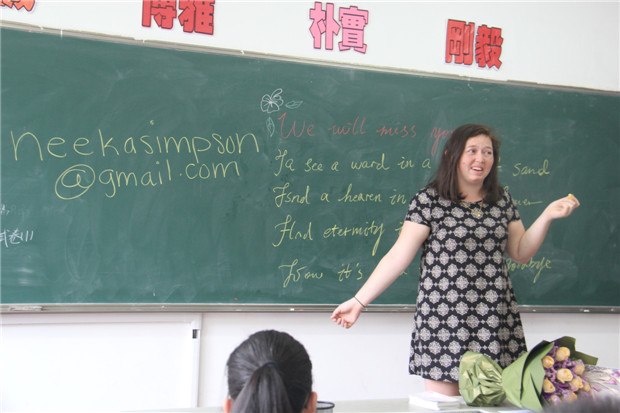 博雅 朴實 剛毅
neekasimpson
@gmail.com
We will miss you
To see a ward in a sand
Find a heaven in
And eternity
Now it's